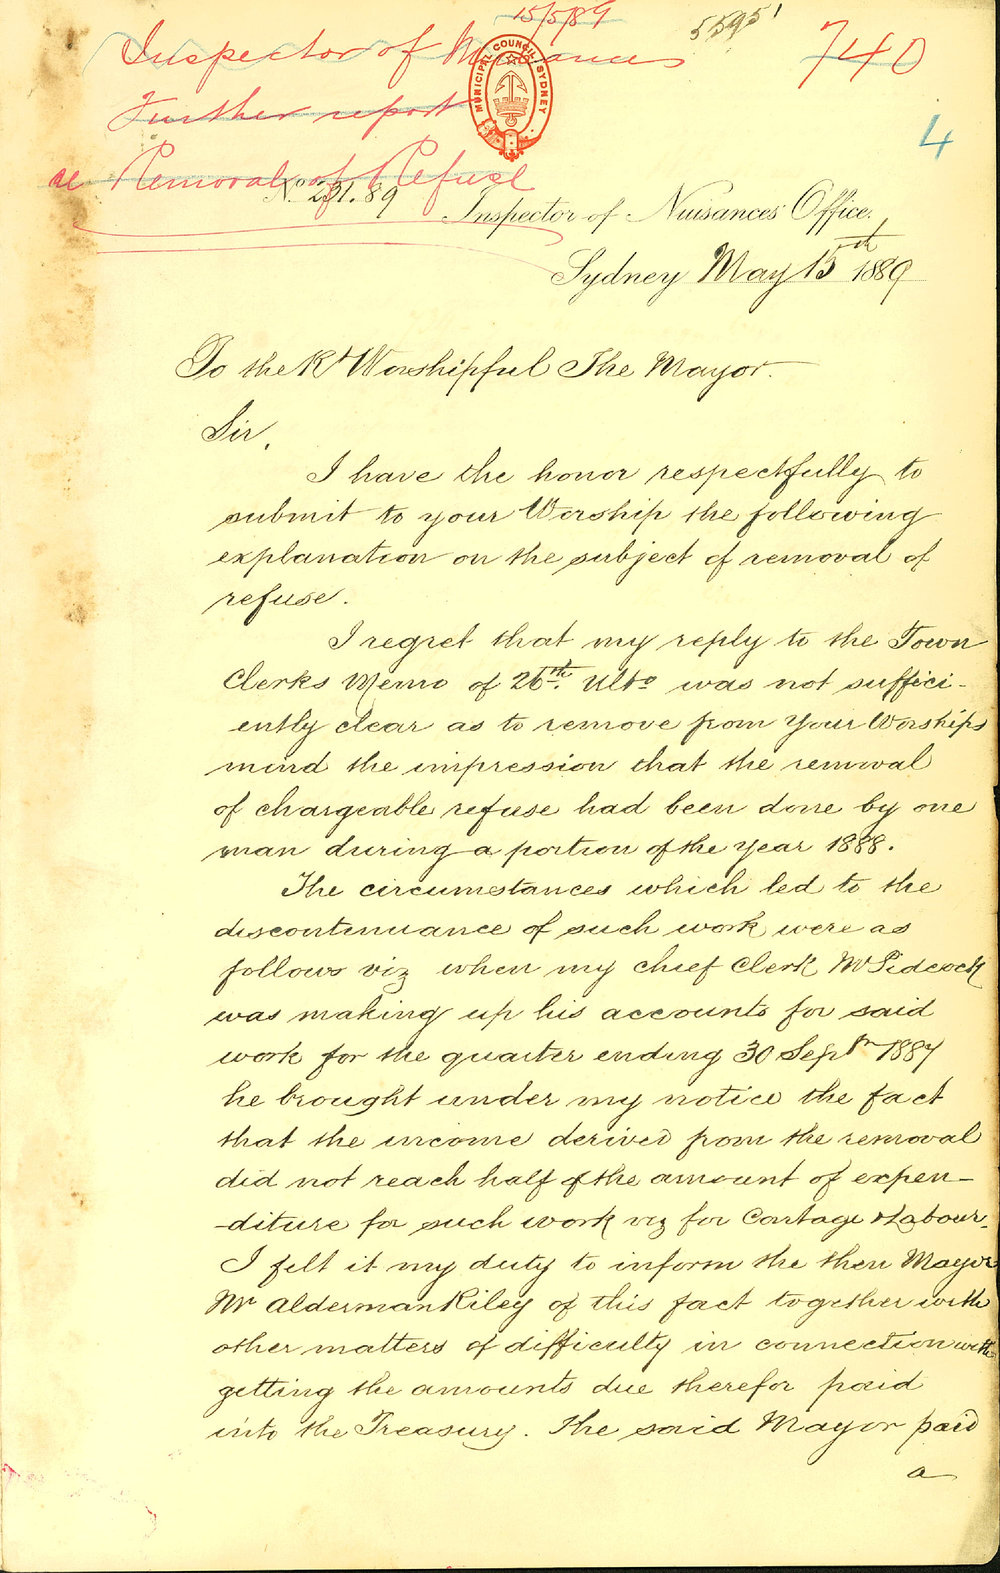 15/5/89
5595
740
Inspector of Nuisances
Further report
re Removal of Refuse
4
MUNICIPAL COUNCIL SYDNEY
No. 231.89
Inspector of Nuisances Office.
Sydney May 15th 1889
To the Rt Worshipful The Mayor.
Sir,
I have the honor respectfully to
submit to your Worship the following
explanation on the subject of removal of
refuse.
I regret that my reply to the Town
Clerks Memo of 26th Ulto was not suffici-
ently clear as to remove from Your Worships
mind the impression that the removal
of chargeable refuse had been done by one
man during a portion of the year 1888.
The circumstances which led to the
discontinuance of such work were as
follows viz when my chief Clerk Mr Pidcock
was making up his accounts for said
work for the quarter ending 30 Septr 1887
he brought under my notice the fact
that the income derived from the removal
did not reach half of the amount of expen-
-diture for such work viz for Cartage & Labour.
I felt it my duty to inform the then Mayor
Mr Alderman Riley of this fact together with
other matters of difficulty in connection with
getting the amounts due therefor paid
into the Treasury. The said Mayor paid
a